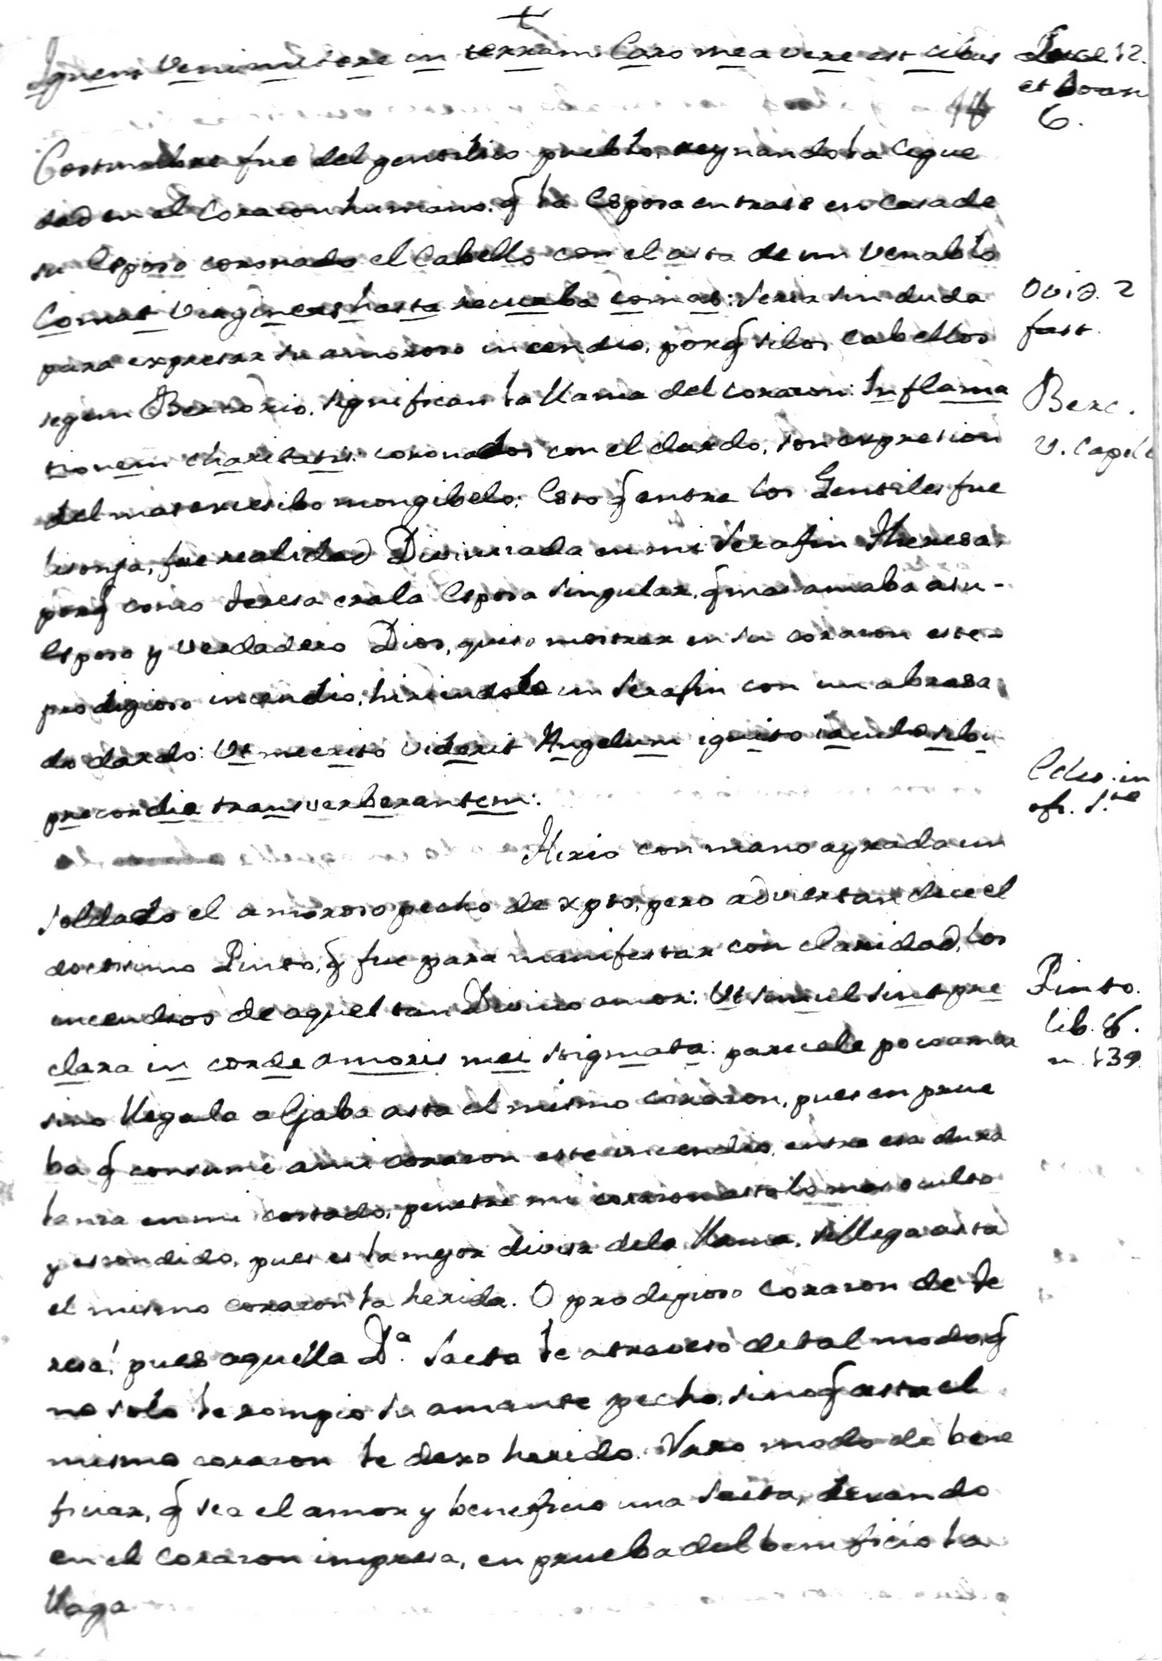 Ignem veni mitere in terram: Caro mea vere est cibus
Luce. 12.
et Joan
6.
Costumbre fue del gentilico pueblo, reynando la cegue
dad en el Corazon humano. q̃ la Esposa entrase en casa de
su Esposo coronado el cabello con el asta de un venablo
Comat virgineas hasta recurba comas: seria sin duda
Ovid. 2
fast.
para expresar su amoroso incendio, porq̃ si los cabellos
segun Berxorio, significan la llama del corazon: Inflama
Berc.
v. Capill
tionem charitatis: coronados con el dardo, son expresion
del mas excesibo mongibelo: Esto q̃ entre los Gentiles fue
lisonja, fue realidad Divinizada en mi Serafin Theresa,
porq̃ como teresa era la esposa singular, q̃ mas amaba a su-
Esposo y verdadero Dios, quiso mostrar en su corazon este-
prodigioso incendio, hiriendolo un Serafin con un abrasa
do dardo: Ut merito viderit Angelum ignito iaculo sibi
Ecles. in
ofi. S.te
precordia transverberantem:
Hirio con mano ayrada un
soldado el amoroso pecho de xpto, pero advierta dice el
doctisimo Pinto, q̃ fue para manifestar con claridad, los
incendios de aquel tan Divino amor: Ut simul sint pre
Pinto.
lib. 6.
n. 139
clara in corde amoris mei stigmata: parecele poco amor
sino llega la aljaba asta el mismo corazon, pues en prue
ba q̃ consume a mi corazon este incendio, entre esa dura
lanza en mi costado, penetre mi corazon asta lo mas oculto
y escondido, pues es la mejor divisa de la llama, si llega asta
el mismo corazon la herida. O prodigioso corazon de te
resa! pues aquella D.ª saeta te atraveso de tal modo q̃
no solo te rompio tu amante pecho, sino q̃ asta el
mismo corazon te dexo herido. Raro modo de bene
ficiar, q̃ sea el amor y beneficio una saeta, dexando
en el corazon impresa, en prueba del beneficio la
llaga